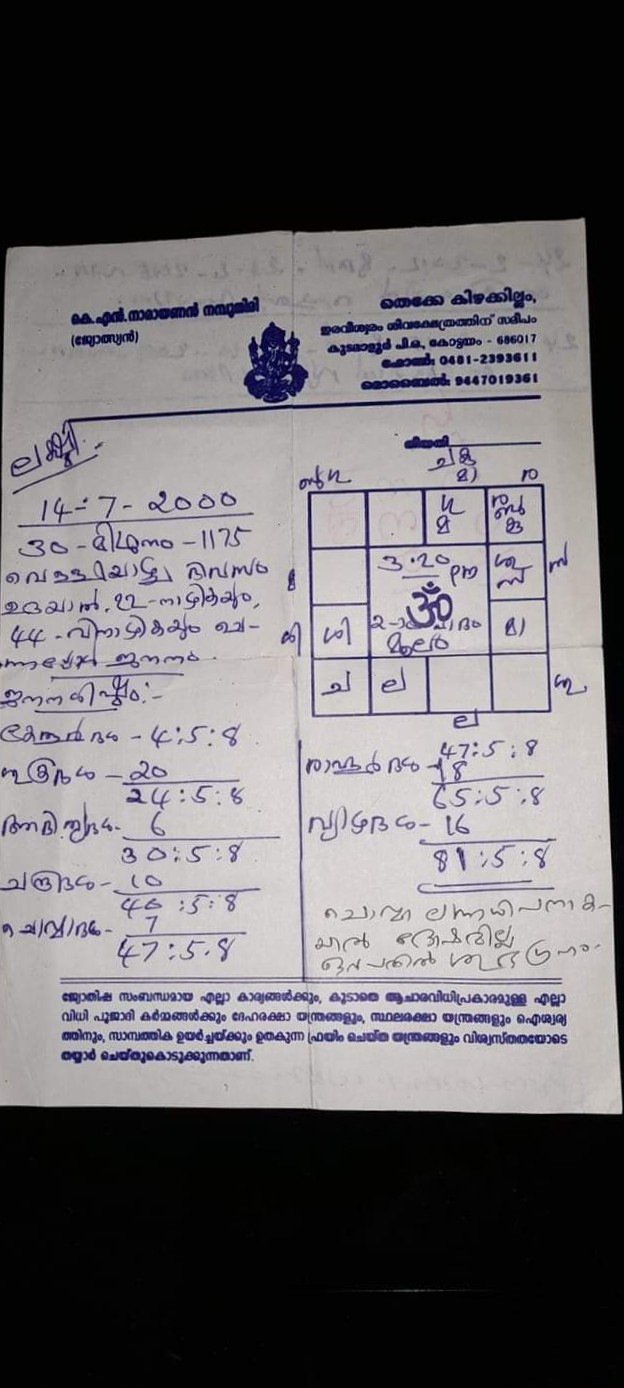 കെ.എൻ.നാരായണൻ നമ്പൂതിരി
(ജ്യോത്സ്യൻ)
തെക്കേ കിഴക്കില്ലം,
ഇരവീശ്വരം ശിവക്ഷേത്രത്തിന് സമീപം
കുടമാളൂർ പി.ഒ, കോട്ടയം - 686017
ഫോൺ: 0481-2393611
മൊബൈൽ: 9447019361
തീയതി
14-7-2000
30-മിഥുനം-1175
വെള്ളിയാഴ്ച ദിവസം
ഉദയാൽ 22-നാഴികയും,
44-വിനാഴികയും ചെ-
ന്നപ്പോൾ ജനനം
ജനനശിഷ്ടം:-
കേതുർദശ-4:5:8
ശുക്രദശ-20
24:5:8
ആദിത്യദശ-6
30:5:8
ചന്ദ്രദശ-10
40:5:8
ചൊവ്വാദശ-7
47:5:8
ച ശു
മാ
ര
ഗു
മ
ര
ബു
കു
3.20 pm
ശു
സ
ശി
2-ാം പാദം
മൂലം
മാ
ച
ല
ല
47:5:8
രാഹൂർദശ-18
65:5:8
വ്യാഴദശ-16
81:5:8
ചൊവ്വാ ലഗ്നാധിപനാക-
യാൽ ദോഷമില്ല
ജ്യോതിഷ സംബന്ധമായ എല്ലാ കാര്യങ്ങൾക്കും, കൂടാതെ ആചാരവിധിപ്രകാരമുള്ള എല്ലാ
വിധ പൂജാദി കർമ്മങ്ങൾക്കും ദേഹരക്ഷാ യന്ത്രങ്ങളും, സ്ഥലരക്ഷാ യന്ത്രങ്ങളും ഐശ്വര്യ
ത്തിനും, സാമ്പത്തിക ഉയർച്ചയ്ക്കും ഉതകുന്ന ഫ്രയിം ചെയ്ത യന്ത്രങ്ങളും വിശ്വസ്തതയോടെ
തയ്യാർ ചെയ്തുകൊടുക്കുന്നതാണ്.